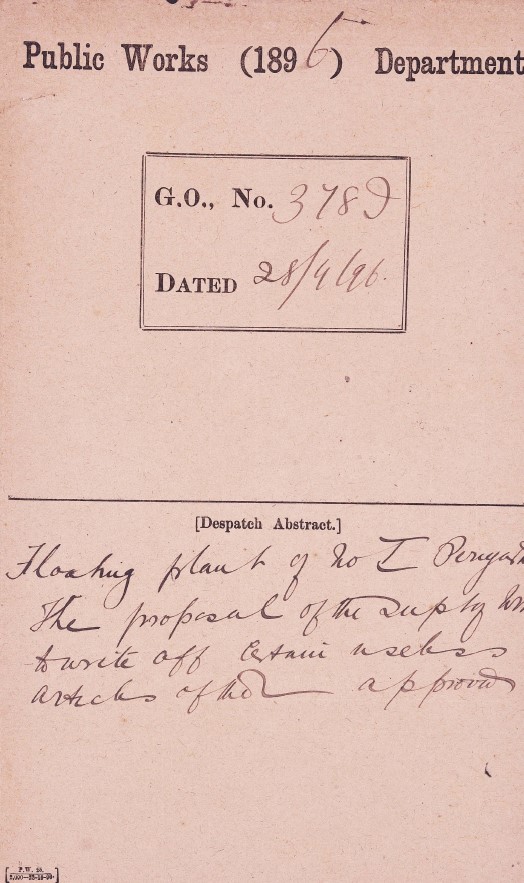 Public Works (1896) Department
G.O., No. 378 D
DATED 28/4/96.
[Despatch Abstract.]
Floating plant of No I
The proposal of the Supdg
to write off certain useless
articles of the approved
P.W. 20.